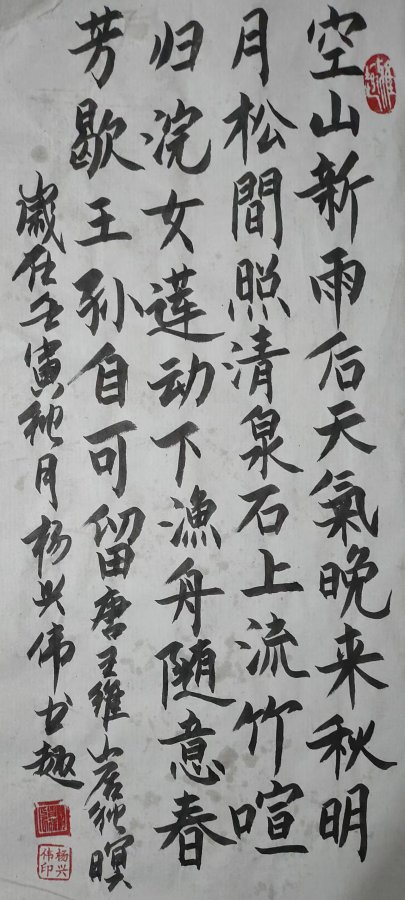 空山新雨后天氣晚来秋明
月松間照清泉石上流竹喧
归浣女莲动下渔舟随意春
芳歇王孙自可留唐王维山居秋暝
岁在壬寅秋月杨兴伟书趣
杨兴伟印